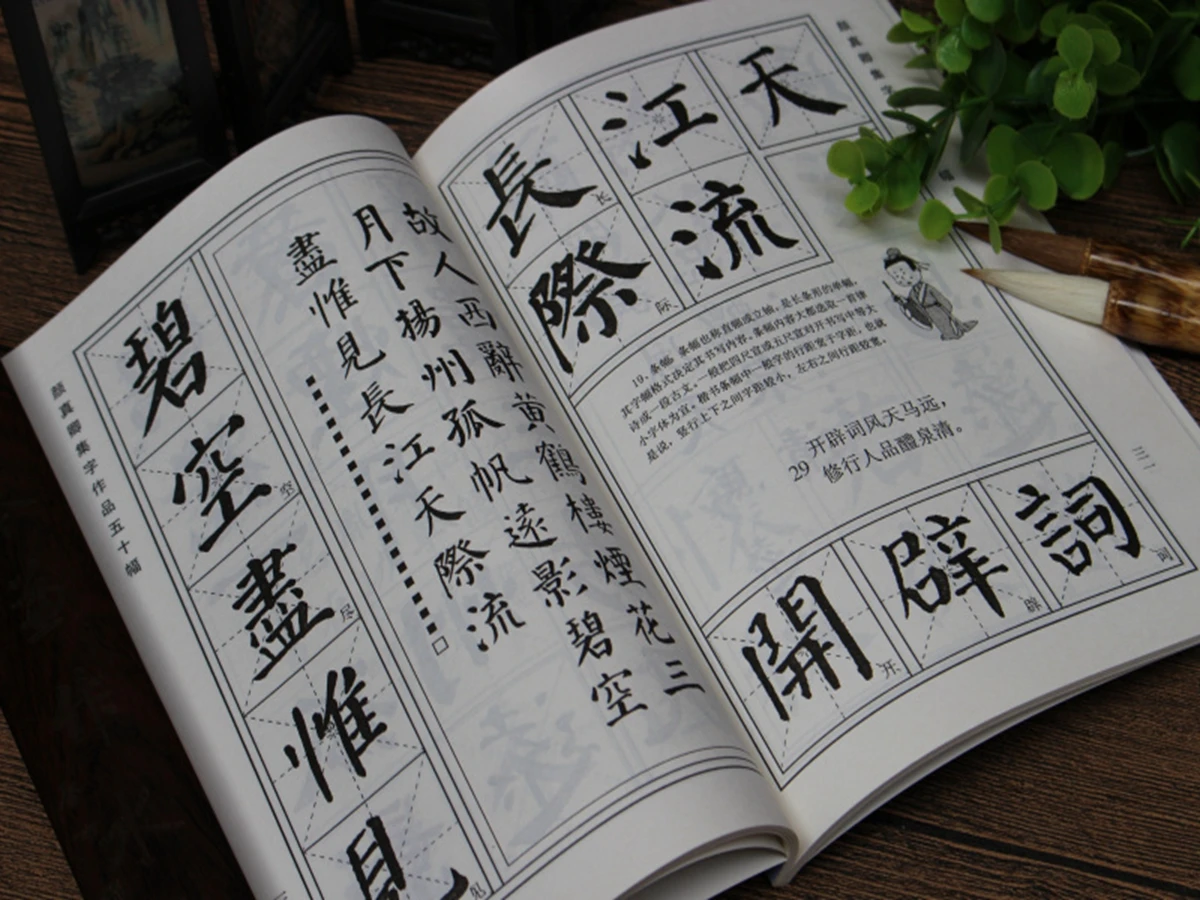 颜真卿集字作品五十幅
碧
空
空
盡
尽
惟
見
见
故人西辭黄鶴樓煙花三
月下揚州孤帆遠影碧空
盡惟見長江天際流
長江天
长
際流
际
19. 条幅。条幅也称直幅或立轴,是长条形的单幅,
其字幅格式决定其书写内容。条幅内容大都选取一首律
诗或一段古文。一般把四尺宣或五尺宣对开书写中等大
小字体为宜。楷书条幅中一般字的行距宽于字距,也就
是说,竖行上下之间字距较小,左右之间行距较宽。
29 开辟词风天马远,
修行人品醴泉清。
開辟詞
开
辟
词
颜真卿集字
幅
三一